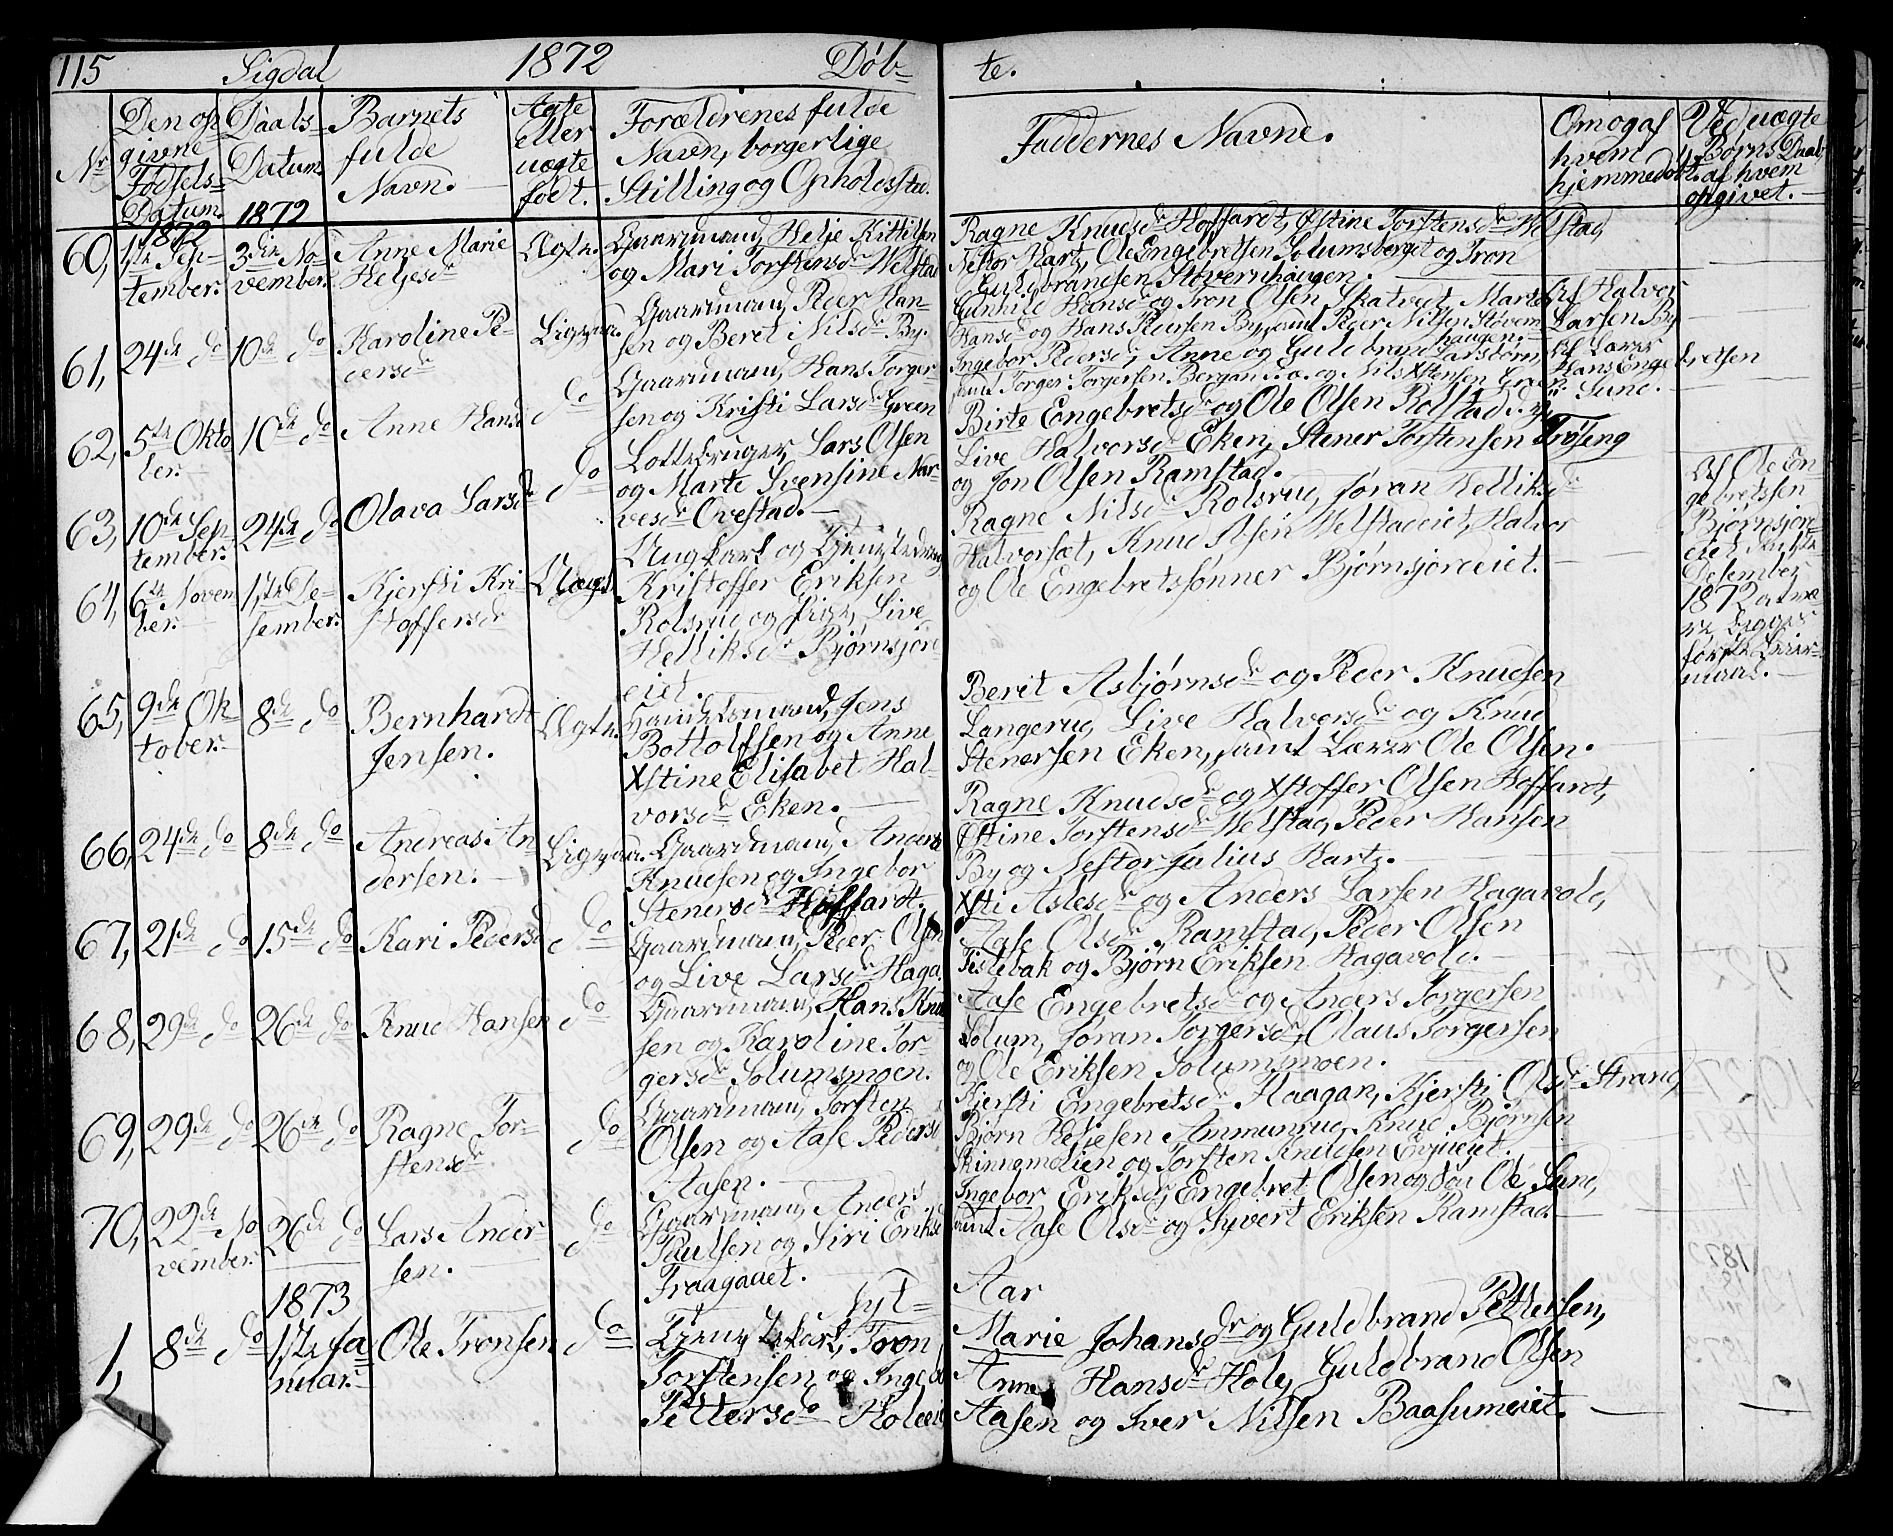 115 Sigdal 1872 Døb- te.
Nr
Den op
givne
Fødsels-
Datum.
1872
Daabs-
Datum
1872
Barnets
fulde
Navn.
Ægte
eller
uægte
født.
Forældrenes fulde
Navn, borgerlige
Stilling og Opholdsstad.
Faddernes Navne.
Om og af
hvem
hjemmedøbt.
Ved uægte
Børns Daab
af hvem
opgivet.
60, 1ste Sep-
tember.
3die No-
vember.
Anne Marie
Helgesdr
Ægte.
Gaardmand, Helje Kittilsen
og Mari Torstensdr Welstad
Ragne Knudsdr Hoffardt, Østine Torstensdr Welstad,
Nestor Hart, Ole Engebretsen Solumsberget og Tron
Guldbrandsen Støvernhaugen.
61, 24de do
10de do
Karoline Pe-
dersdr
Ligesaa.
Gaardmand, Peder Han-
sen og Beret Nilsdr By.
Gunhild Hansdr og Tron Olsen Skatvedt, Marte
Hansdr og Hans Pedersen By, samt Peder Nilsen Støvern-
haugen.
Af Halvor
Larsen By
62, 5te Okto
ber.
10de do
Anne Hansdr
do
Gaardmand, Hans Torger-
sen og Kristi Larsdr Green
Ingebor Pedersdr, Anne og Guldbrand Larsbørn
samt Torger Torgersen Bergan og Nils Xstensen Green.
Af Lærer
Hans Engebretsen
Lund.
63, 10de Sep-
tember.
24de do
Olava Larsdr
do
Lottebruger, Lars Olsen
og Marte Svensine Nar-
vesdr Ovestad.
Birte Engebretsdr og Ole Olsen Rolstad
Live Halvorsdr Eken, Stener Torstensen Frøseng
og Jon Olsen Ramstad.
64, 6te Novem
ber.
1ste De-
sember.
Kjersti Kri
stoffersdr
Uægte
Ungkarl og Tjenestedreng
Kristoffer Eriksen
Rolsrud og Pige, Live
Helliksdr Bjørnsjord
eiet.
Ragne Nilsdr Rolsrud, Jøran Helliksdr
Halvorset, Knud Olsen Welstadeiet, Halvor
og Ole Engebretssønner Bjørnsjordeiet.
Af Ole En
gebretssen
Bjørnsjord
eiet
Desember
1872 at væ
re begges
første Leier-
maal.
65, 9de Ok
tober.
8de do
Bernhardt
Jensen.
Ægte.
Handelsmand, Jens
Bottolfsen og Anne
Xstine Elisabet Hal-
vorsdr Eken.
Beret Asbjørnsdr og Peder Knudsen
Langerud, Live Halvorsdr og Knud
Stenersen Eken, samt Lærer Ole Olsen.
66, 24de do
8de do
Andreas An
dersen.
Ligesaa.
Gaardmand, Anders
Knudsen og Ingebor
Stenersdr Hoffardt.
Ragne Knudsdr og Xstoffer Olsen Hoffardt,
Østine Torstensdr Welstad, Peder Hansen
By og Nestor Julius Hartz.
67, 21de do
15de do
Kari Pedersdr
do
Gaardmand, Peder Olsen
og Live Larsdr Haga.
Xsti Aslesdr og Anders Larsen Hagavold,
Aase Olsdr Ramstad, Peder Olsen
Tislebak og Bjørn Eriksen Hagavold.
68, 29de do
26de do
Knud Hansen
do
Gaardmand, Hans Knud
sen og Karoline Tor-
gersdr Solumsmoen.
Aase Engebretsdr og Anders Torgersen
Solum, Jøran Torgersdr, Olaus Torgersen
og Ole Eriksen Solumsmoen.
69, 29de do
26de do
Ragne Tor-
stensdr
do
Gaardmand, Torsten
Olsen og Aase Pedersdr
Aasen.
Kjersti Engebretsdr Haagan, Kjersti Olsdr Strand,
Bjørn Helgesen Ammunrud, Knud Bjørnsen
Skinnemolien og Torsten Knudsen
70, 22de No
vember.
26de do
Lars Ander-
sen.
do
Gaardmand, Anders
Paulsen og Siri Eriksdr
Fraagaaet.
Ingebor Eriksdr, Engebret Olsen og Søn Ole Lund,
samt Aase Olsdr og Syvert Eriksen Ramstad.
1873
Nyt- Aar
1, 8de do
1ste Ja
nuar.
Ole Tronsen
do
Tjenestekarl, Tron
Torstensen og Ingebor
Pettersdr Holeeiet
Marie Johansdr og Guldbrand Pettersen,
Anne Hansdr Hole, Guldbrand Olsen
Aasen og Iver Nilsen Baasumeiet.